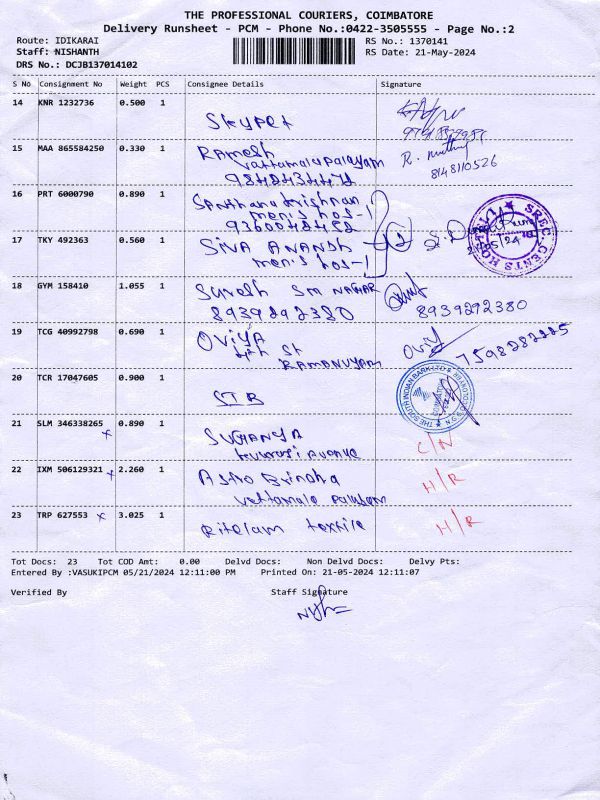 THE PROFESSIONAL COURIERS, COIMBATORE
Delivery Runsheet - PCM - Phone No.:0422-3505555 - Page No.:2
Route: IDIKARAI RS No.: 1370141
Staff: NISHANTH RS Date: 21-May-2024
DRS No.: DCJB137014102
S No Consignment No Weight PCS Consignee Details Signature
14 KNR 1232736 0.500 1
Skypet
15 MAA 865584250 0.330 1
Ramesh
Vattamalapalayam
R. muthu
8148110526
16 PRT 6000790 0.890 1
Santhana Krishnan
men's hos-1
9360048482
17 TKY 492363 0.560 1
SIVA ANANDH
men's hos-1
2
SREC-CENTS HOSTEL
18 GYM 158410 1.055 1
Suresh SM NAGAR
8939292380
8939292380
19 TCG 40992798 0.690 1
OViYA
4th St
Oviy
7598282225
20 TCR 17047605 0.900 1
THE SOUTH INDIAN BANK LTD
21 SLM 346338265 x 0.890 1
SUGHANYA
C/N
22 IXM 506129321 x 2.260 1
Astro Brindha
Vattamala Palayam
H/R
23 TRP 627553 x 3.025 1
Ritelam textile
H/R
Tot Docs: 23 Tot COD Amt: 0.00 Delvd Docs: Non Delvd Docs: Delvy Pts:
Entered By :VASUKIPCM 05/21/2024 12:11:00 PM Printed On: 21-05-2024 12:11:07
Verified By Staff Signature